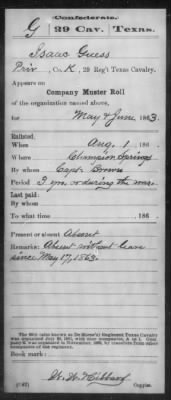 Confederate.
G 29 Cav. Texas.
Isaac Guess
Priv, Co. K, 29 Reg't Texas Cavalry.
Appears on
Company Muster Roll
of the organization named above,
for May & June, 1863.
Enlisted:
When Aug. 1, 186 .
Where Champion Springs
By whom Capt. Brown
Period 3 yrs or during the war
Last paid:
By whom
To what time , 186 .
Present or absent Absent
Remarks: Absent without leave
since May 17, 1863.
Book mark:
(642)
Copyist.